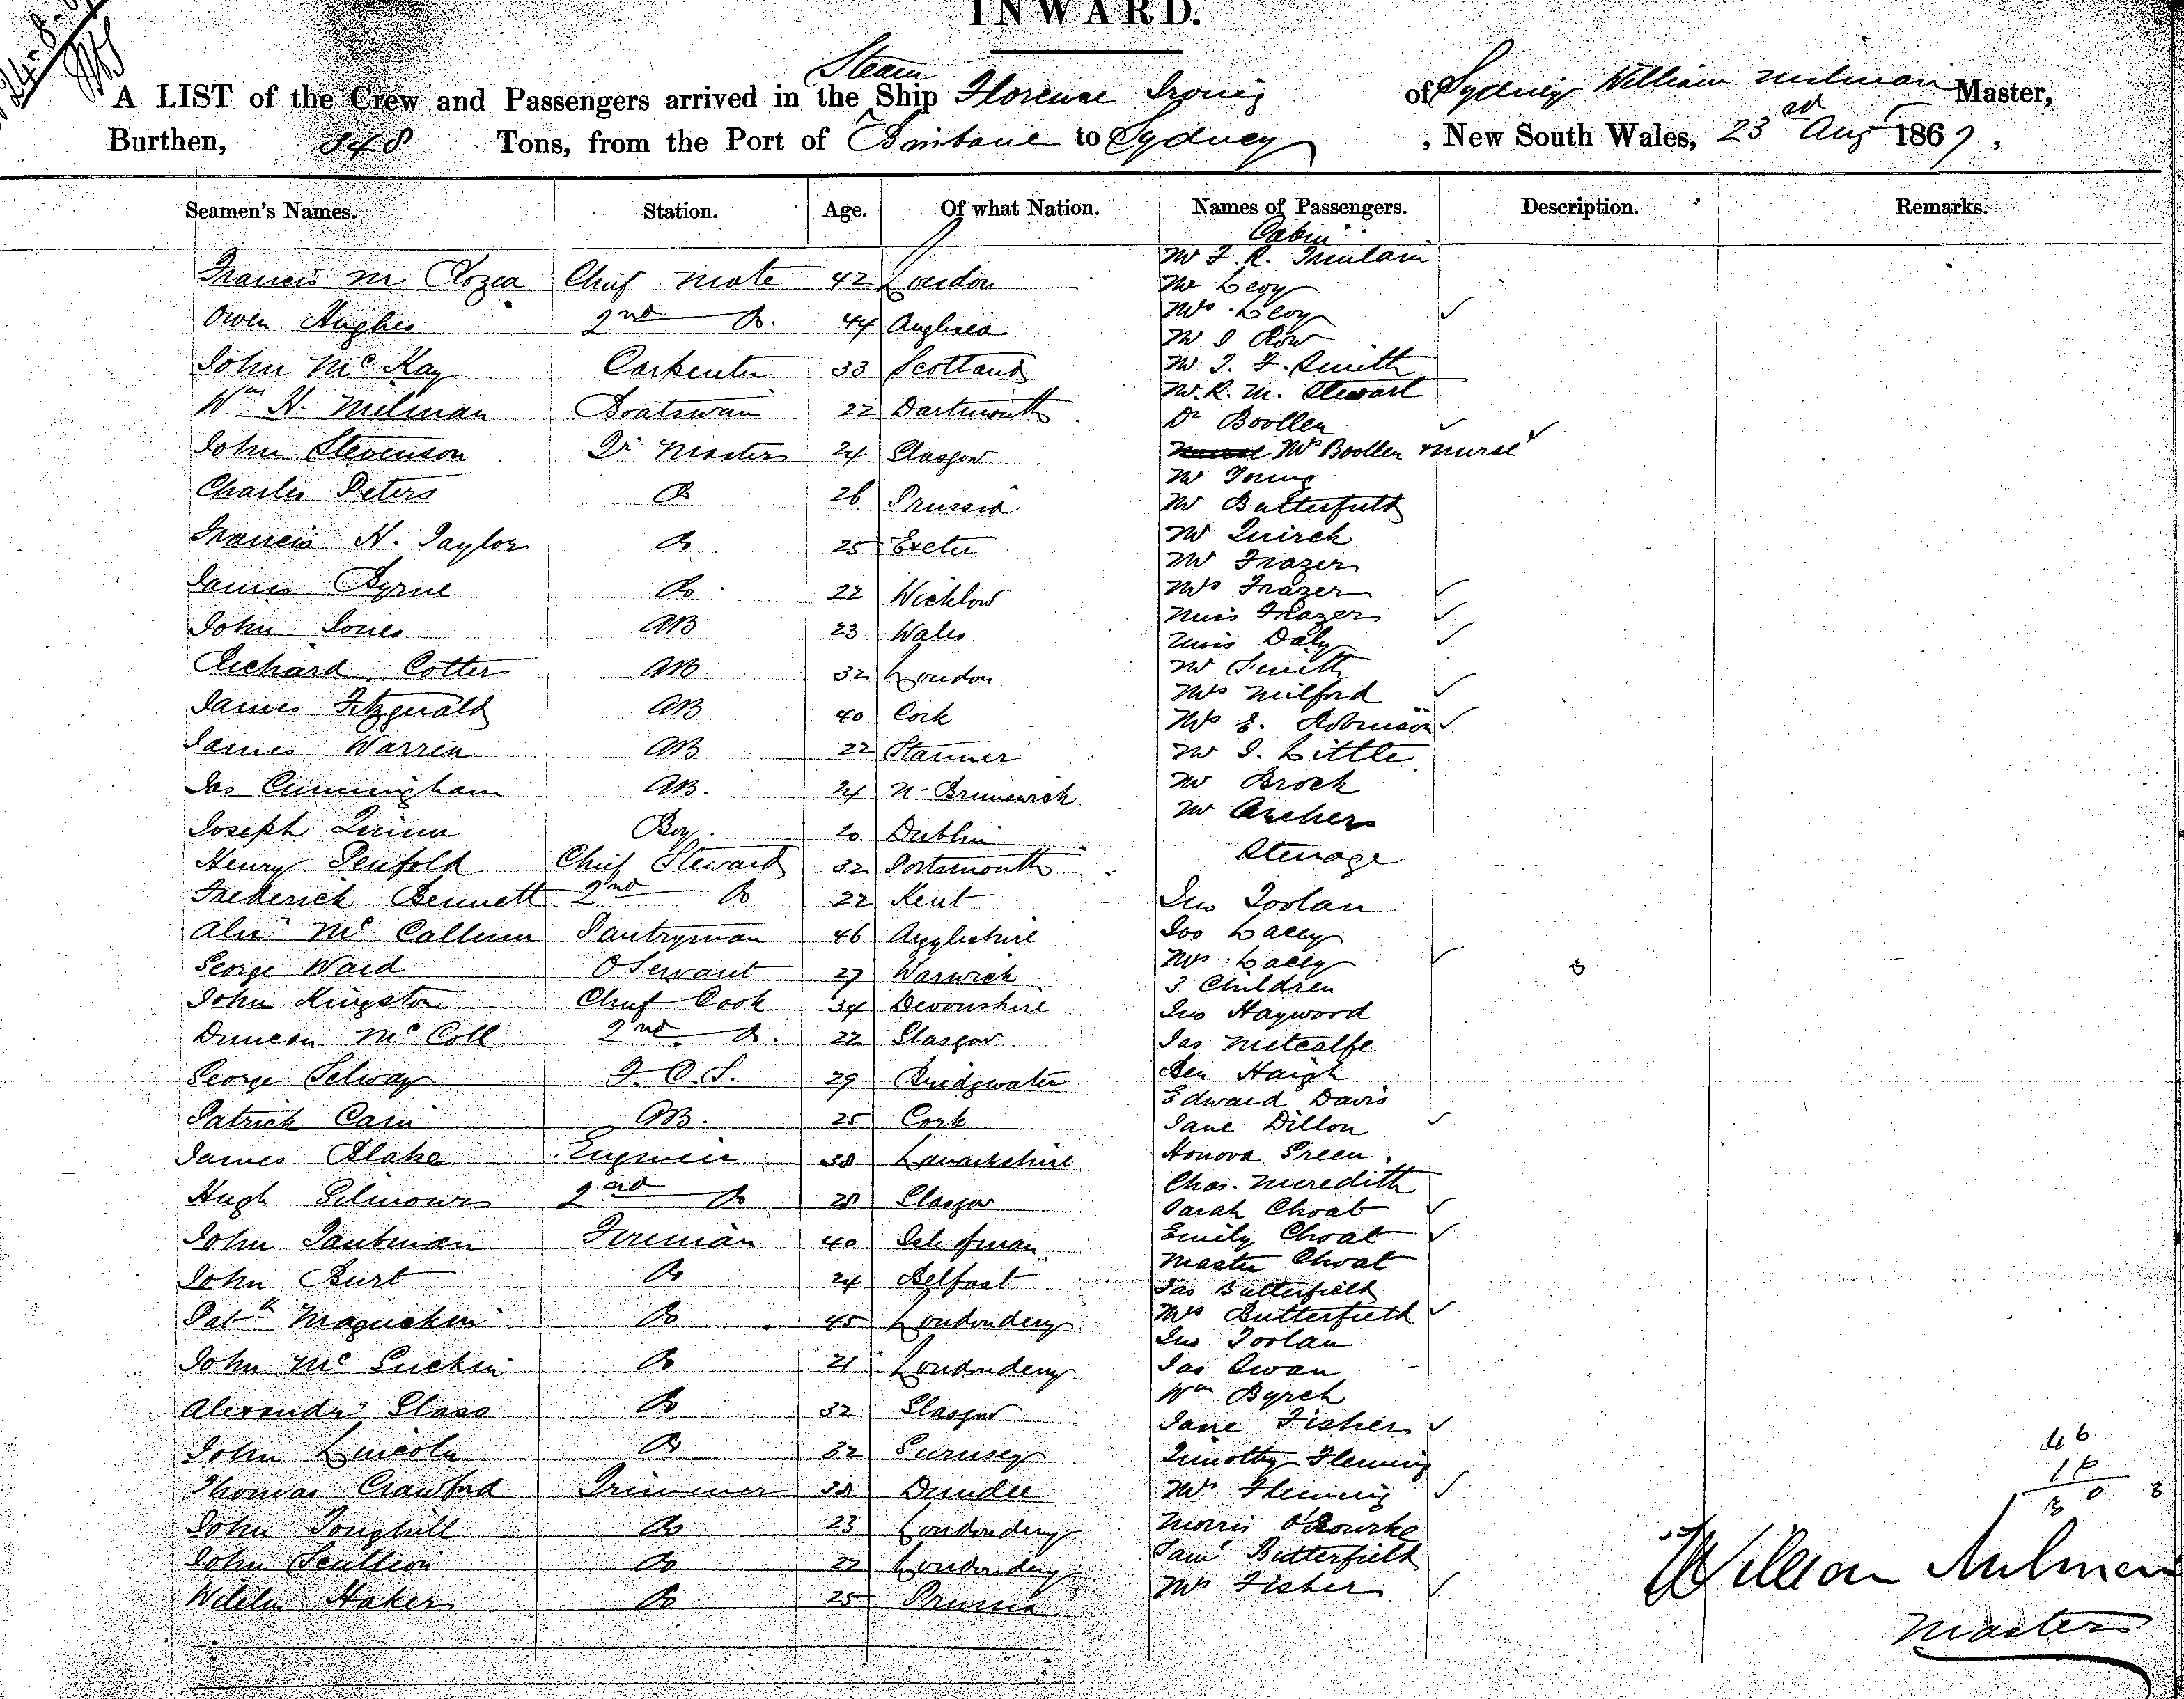 INWARD.
A LIST of the Crew and Passengers arrived in the Steam Ship Florence Irving of Sydney William Milman Master,
Burthen, 848 Tons, from the Port of Brisbane to Sydney, New South Wales, 23rd Aug 1867,
Seamen's Names. Station. Age. Of what Nation. Names of Passengers. Description. Remarks.
Francis M. Chief Mate 42 London
Owen Hughes 2nd Do. 44 Anglesea
John McKay Carpenter 33 Scotland
Wm H. Milman Boatswain 22 Dartmouth
John Stevenson Qr Master 24 Glasgow
Charles Peters Do 26 Prussia
Francis H. Taylor Do 25 Exeter
James Byrne Do 22 Wicklow
John Jones AB 23 Wales
Richard Cotter AB 32 London
James Fitzgerald AB 40 Cork
James Warren AB 22
Jas Cunningham AB. 24 N-Brunswick
Joseph Quinn Boy 20 Dublin
Henry Penfold Chief Steward 32 Portsmouth
Frederick Bennett 2nd Do 22 Kent
Alexr McCallum Pantryman 46 Argyleshire
George Ward Servant 27 Warwick
John Kingston Chief Cook 34 Devonshire
Duncan McColl 2nd Do. 22 Glasgow
George Selway F.C.S. 29 Bridgwater
Patrick Cain AB. 25 Cork
James Blake Engineer 38 Lanarkshire
Hugh Gilmour 2nd Do 28 Glasgow
John Taubman Fireman 40 Isle of man
John Burt Do 24 Belfast
Patk Do 45 Londonderry
John Mc Do 21 Londonderry
Alexander Glass Do 32 Glasgow
John Lincoln Do 32 Guernsey
Thomas Crawford Trimmer 38 Dundee
John Do 23 Londonderry
John Scullion Do 22 Londonderry
Do 25 Prussia
Cabin
Mr F. R.
Mr Levy
Mrs Levy
Mr J Row
Mr J. F. Smith
Mr. R. M. Stewart
Dr Boollen
Mrs Boollen & nurse
Mr Young
Mr Butterfield
Mr Quirck
Mr Frazer
Mrs Frazer
Miss Frazer
Miss Daly
Mr Smith
Mrs Milford
Mrs E. Robinson
Mr J. Little
Mr Brock
Mr Archer
Steerage
Jno Toolan
Jos Lacey
Mrs Lacey
3 Children
Jno Hayword
Jas Metcalfe
Ben Haigh
Edward Davis
Jane Dillon
Honora Green
Chas. Meredith
Sarah Choat
Emily Choat
Master Choat
Jas Butterfield
Mrs Butterfield
Jno Toolan
Jas Swan
Wm Byrch
Jane Fisher
Timothy Fleming
Mrs Fleming
Morris O'Rourke
Saml Butterfield
Mrs Fisher
46
William Milman
Master